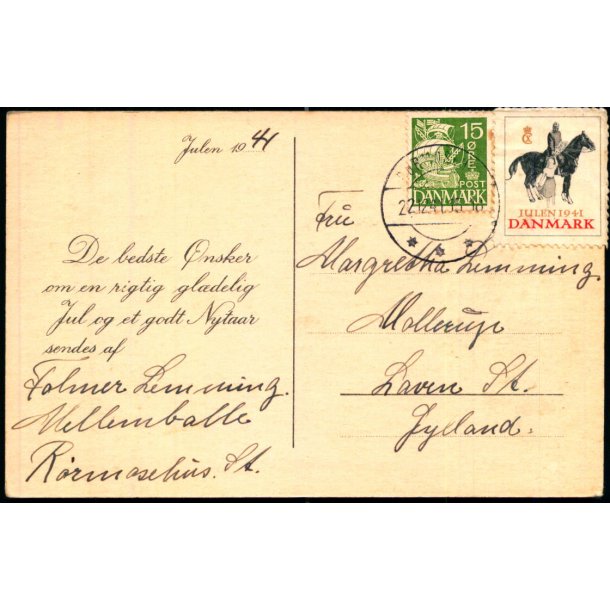 Julen 1941
De bedste Ønsker
om en rigtig glædelig
Jul og et godt Nytaar
sendes af
Folmer Lemming.
Mellemballe
Rørmosehus. St.
15
ØRE
POST
DANMARK
22.12.41.
JULEN 1941
DANMARK
Fru
Margretha Lemming.
Mollerup
Laven St.
Jylland.